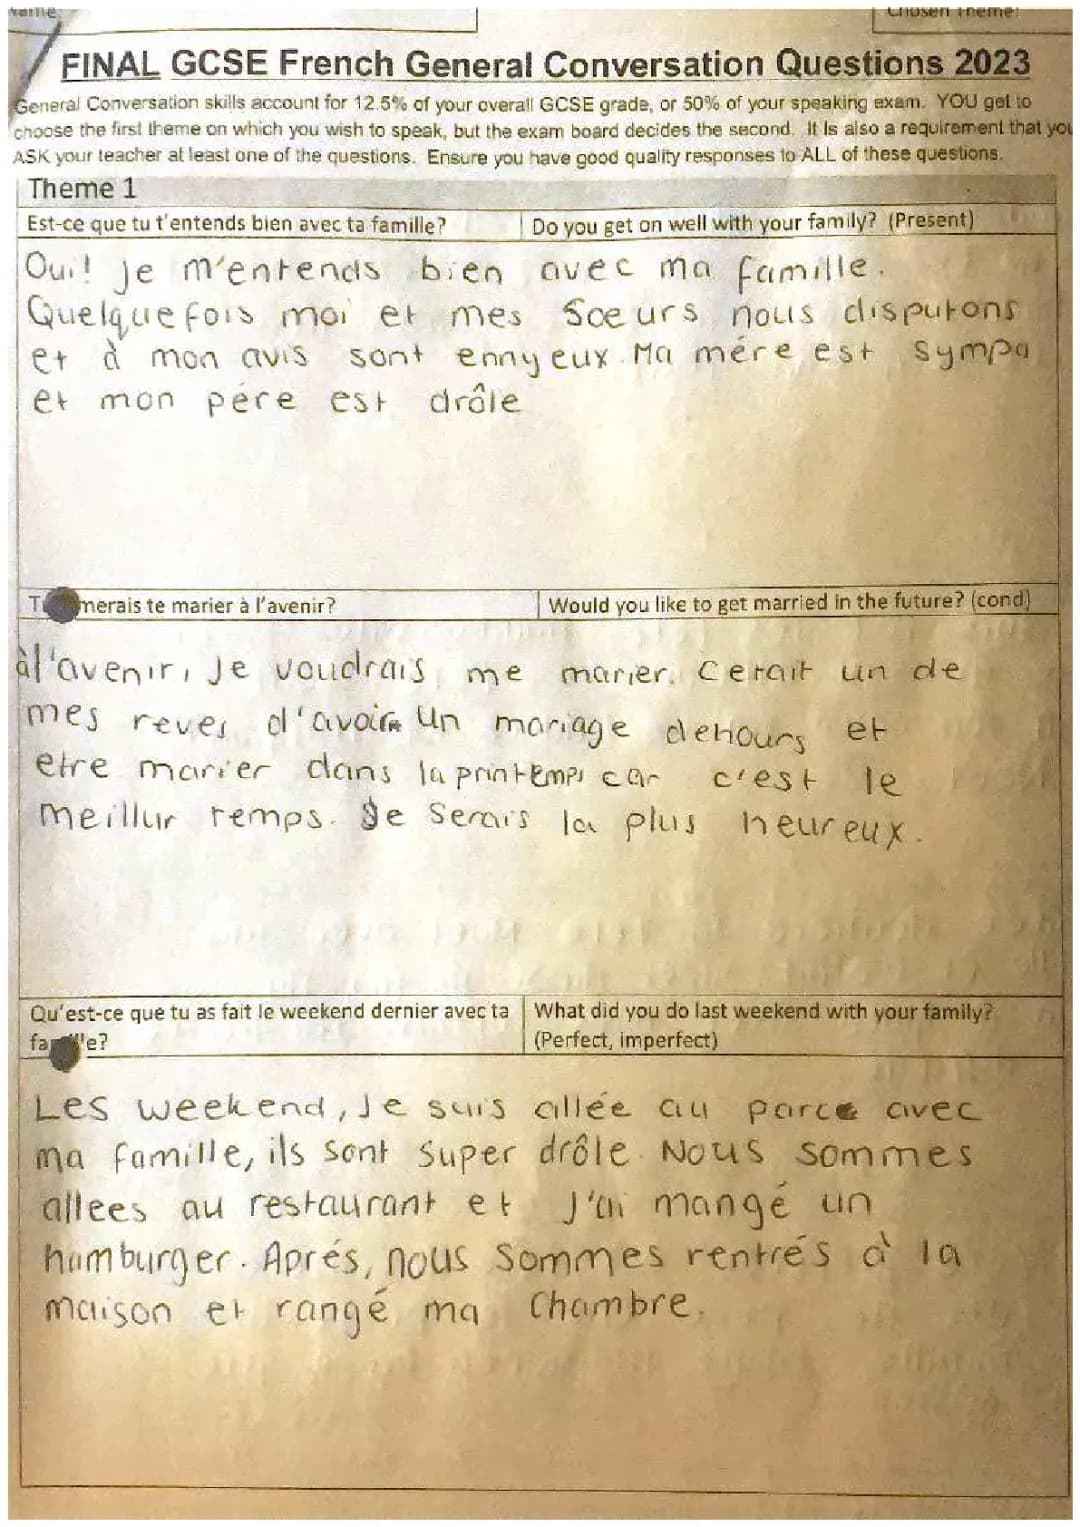 Name:
Chosen Theme:
FINAL GCSE French General Conversation Questions 2023
General Conversation skills account for 12.5% of your overall GCSE grade, or 50% of your speaking exam. YOU get to
choose the first theme on which you wish to speak, but the exam board decides the second. It is also a requirement that you
ASK your teacher at least one of the questions. Ensure you have good quality responses to ALL of these questions.
Theme 1
Est-ce que tu t'entends bien avec ta famille? Do you get on well with your family? (Present)
Oui! je m'entends bien avec ma famille.
Quelquefois moi et mes soeurs nous disputons
et à mon avis sont ennyeux. Ma mére est sympa
et mon pére est drôle
merais te marier à l'avenir? Would you like to get married in the future? (cond)
àl'avenir, Je voudrais me marier. Cerait un de
mes reves d'avoir un mariage dehours et
etre marier dans la printemps car c'est le
meillur temps. Je Serais la plus heureux.
Qu'est-ce que tu as fait le weekend dernier avec ta What did you do last weekend with your family?
(Perfect, imperfect)
Les weekend, Je suis allée au parce avec
ma famille, ils sont super drôle. Nous sommes
allees au restaurant et J'ai mangé un
hamburger. Aprés, nous sommes rentrés à la
maison et rangé ma chambre.